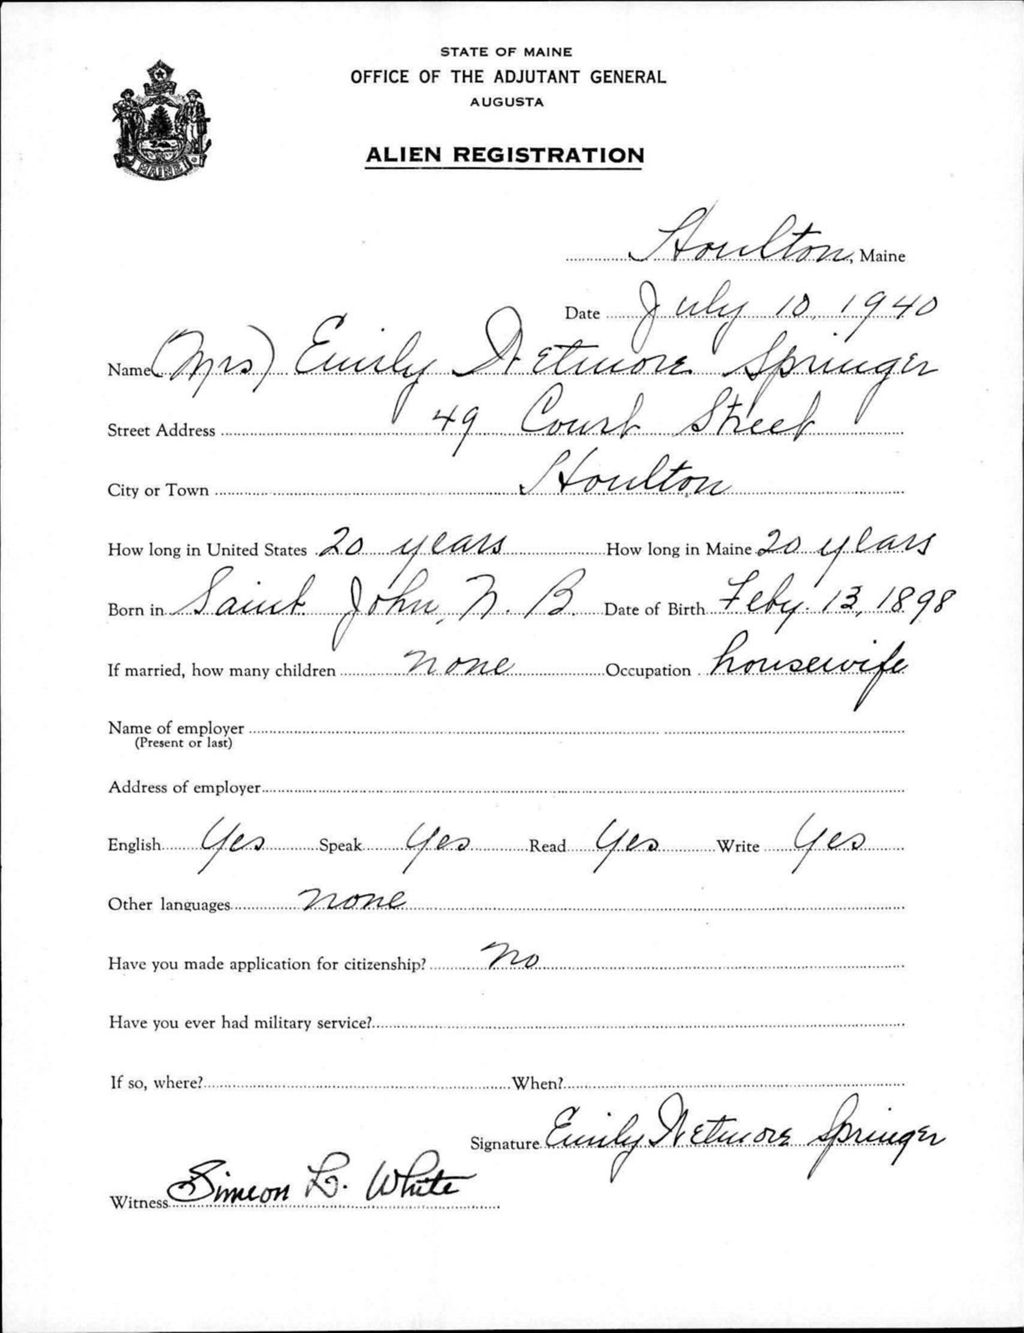 STATE OF MAINE
OFFICE OF THE ADJUTANT GENERAL
AUGUSTA
ALIEN REGISTRATION
MAINE
Houlton, Maine
Date July 10, 1940
Name (Mrs) Emily Wetmore Springer
Street Address 49 Court Street
City or Town Houlton
How long in United States 20 years How long in Maine 20 years
Born in Saint John, N. B. Date of Birth Feby. 13, 1898
If married, how many children none Occupation housewife
Name of employer
(Present or last)
Address of employer
English Yes Speak Yes Read Yes Write Yes
Other languages none
Have you made application for citizenship? No
Have you ever had military service?
If so, where? When?
Signature Emily Wetmore Springer
Witness Simeon L. White